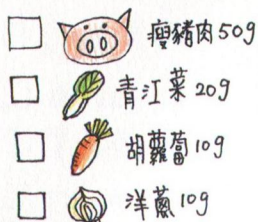 瘦豬肉50g
青江菜20g
胡蘿蔔10g
洋蔥10g